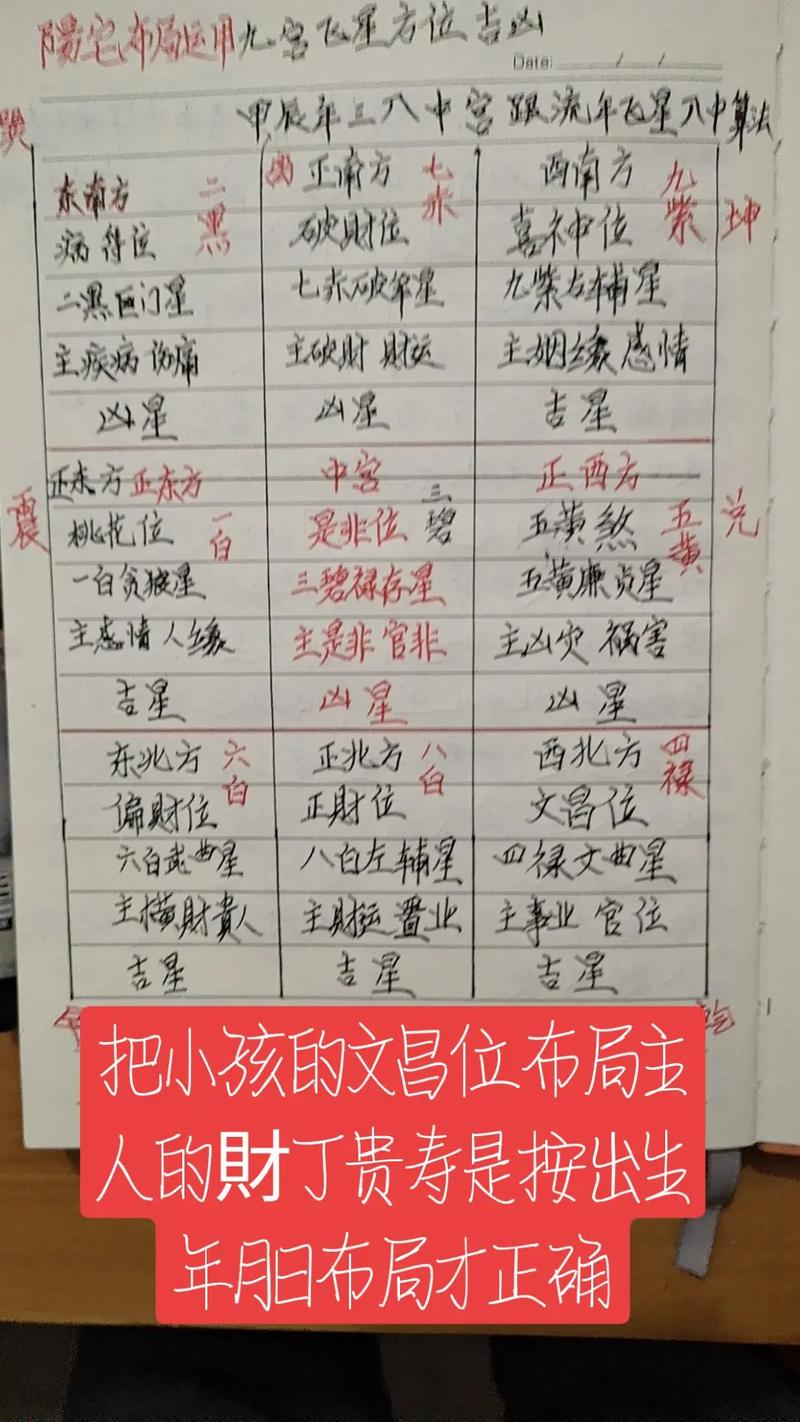 陽宅布局运用九宫飞星方位吉凶
Date: / /
甲辰年三入中宫 跟流年飞星入中算法
东南方 二黑
病符位
二黑巨门星
主疾病 伤痛
凶星
正南方 七赤
破財位
七赤破军星
主破財 財运
凶星
西南方 九紫 坤
喜神位
九紫右辅星
主姻缘感情
吉星
震 正东方 正东方
桃花位 一白
一白贪狼星
主感情人缘
吉星
中宫 三碧
是非位
三碧禄存星
主是非 官非
凶星
正西方 兑
五黄煞 五黄
五黄廉贞星
主凶灾 祸害
凶星
东北方 六白
偏財位
六白武曲星
主横財貴人
吉星
正北方 八白
正財位
八白左辅星
主財运 置业
吉星
西北方 四禄
文昌位
四禄文曲星
主事业 官位
吉星
乾
把小孩的文昌位布局主
人的財丁贵寿是按出生
年月日布局才正确